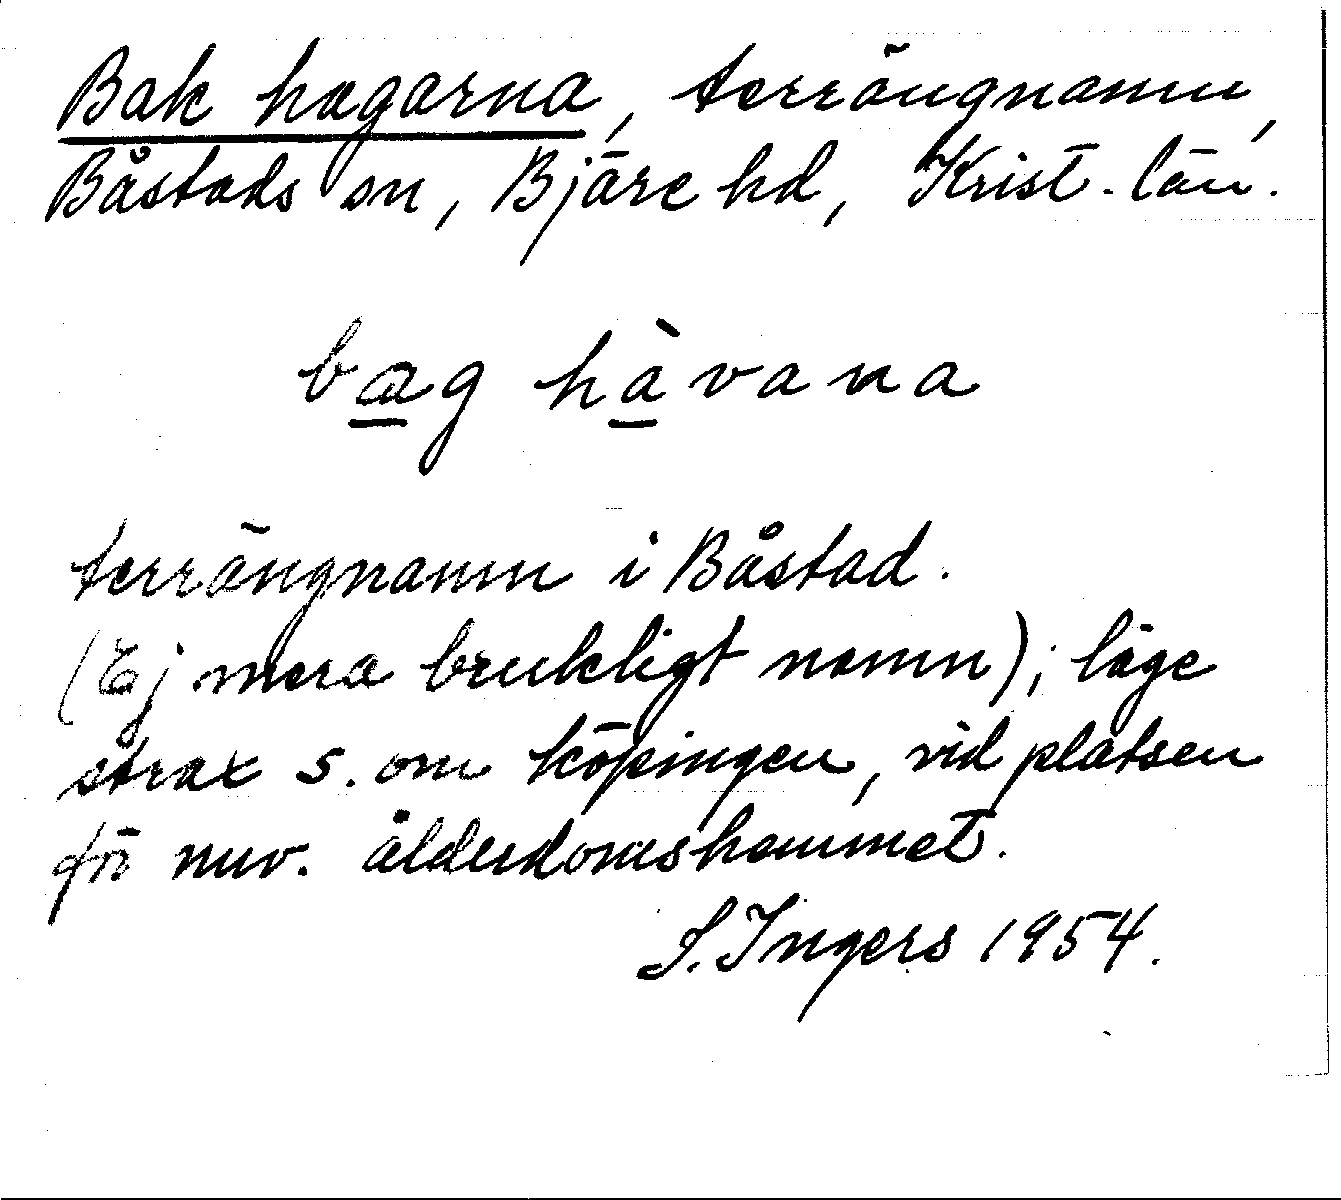 Bak hagarna, terrängnamn,
Båstads sn, Bjäre hd, Krist. län.
bag hàvana
terrängnamn i Båstad.
(Ej mera brukligt namn); läge
strax s. om köpingen, vid platsen
för nuv. ålderdomshemmet.
S. Ingers 1954.